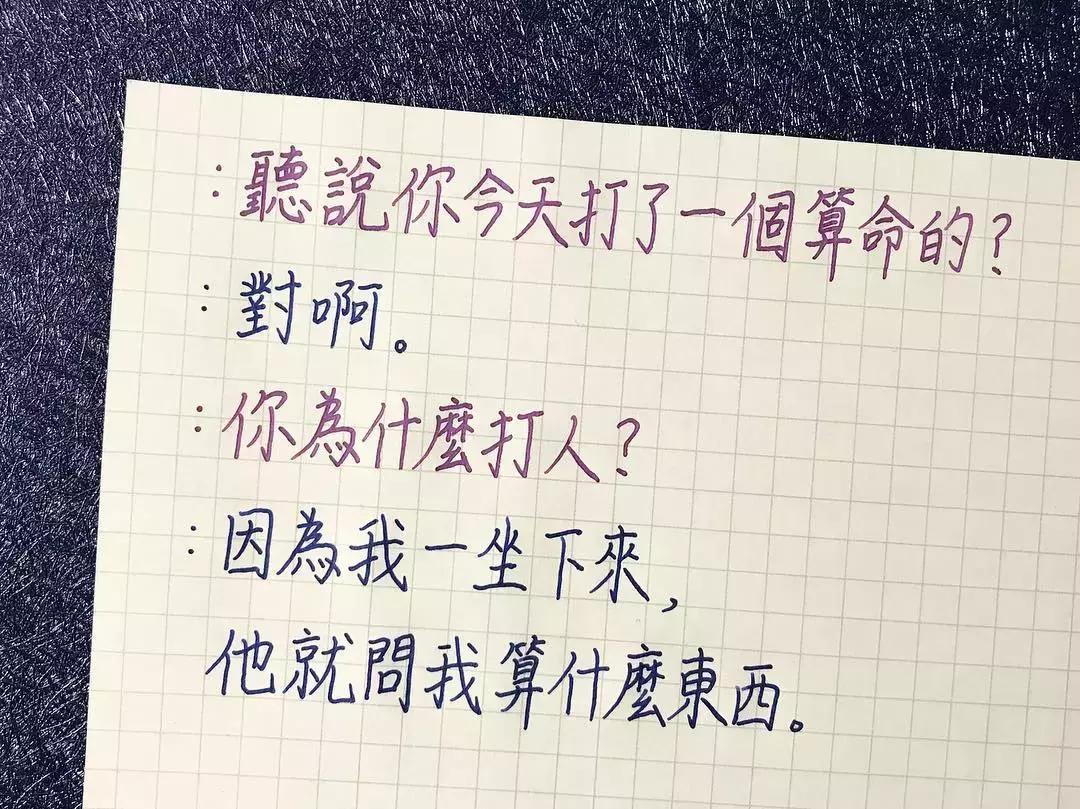 ：聽說你今天打了一個算命的？
：對啊。
：你為什麼打人？
：因為我一坐下來，
他就問我算什麼東西。